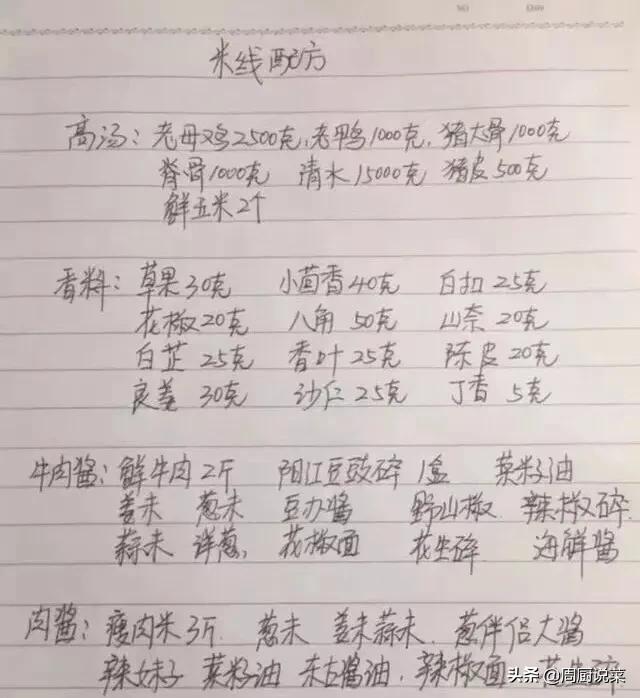 NO Date
米线配方
高汤：老母鸡2500克，老鸭1000克，猪大骨1000克
脊骨1000克 清水15000克 猪皮500克
鲜玉米2个
香料：草果30克 小茴香40克 白扣25克
花椒20克 八角50克 山奈20克
白芷25克 香叶25克 陈皮20克
良姜30克 沙仁25克 丁香5克
牛肉酱：鲜牛肉2斤 阳江豆豉碎1盒 菜籽油
姜未 葱未 豆办酱 野山椒 辣椒碎
蒜未 洋葱 花椒面 花生碎 海鲜酱
肉酱：瘦肉米3斤 葱未 姜未蒜未 葱伴侣大酱
辣妹子 菜籽油 东古酱油 辣椒面 花生碎
头条 @周厨说菜